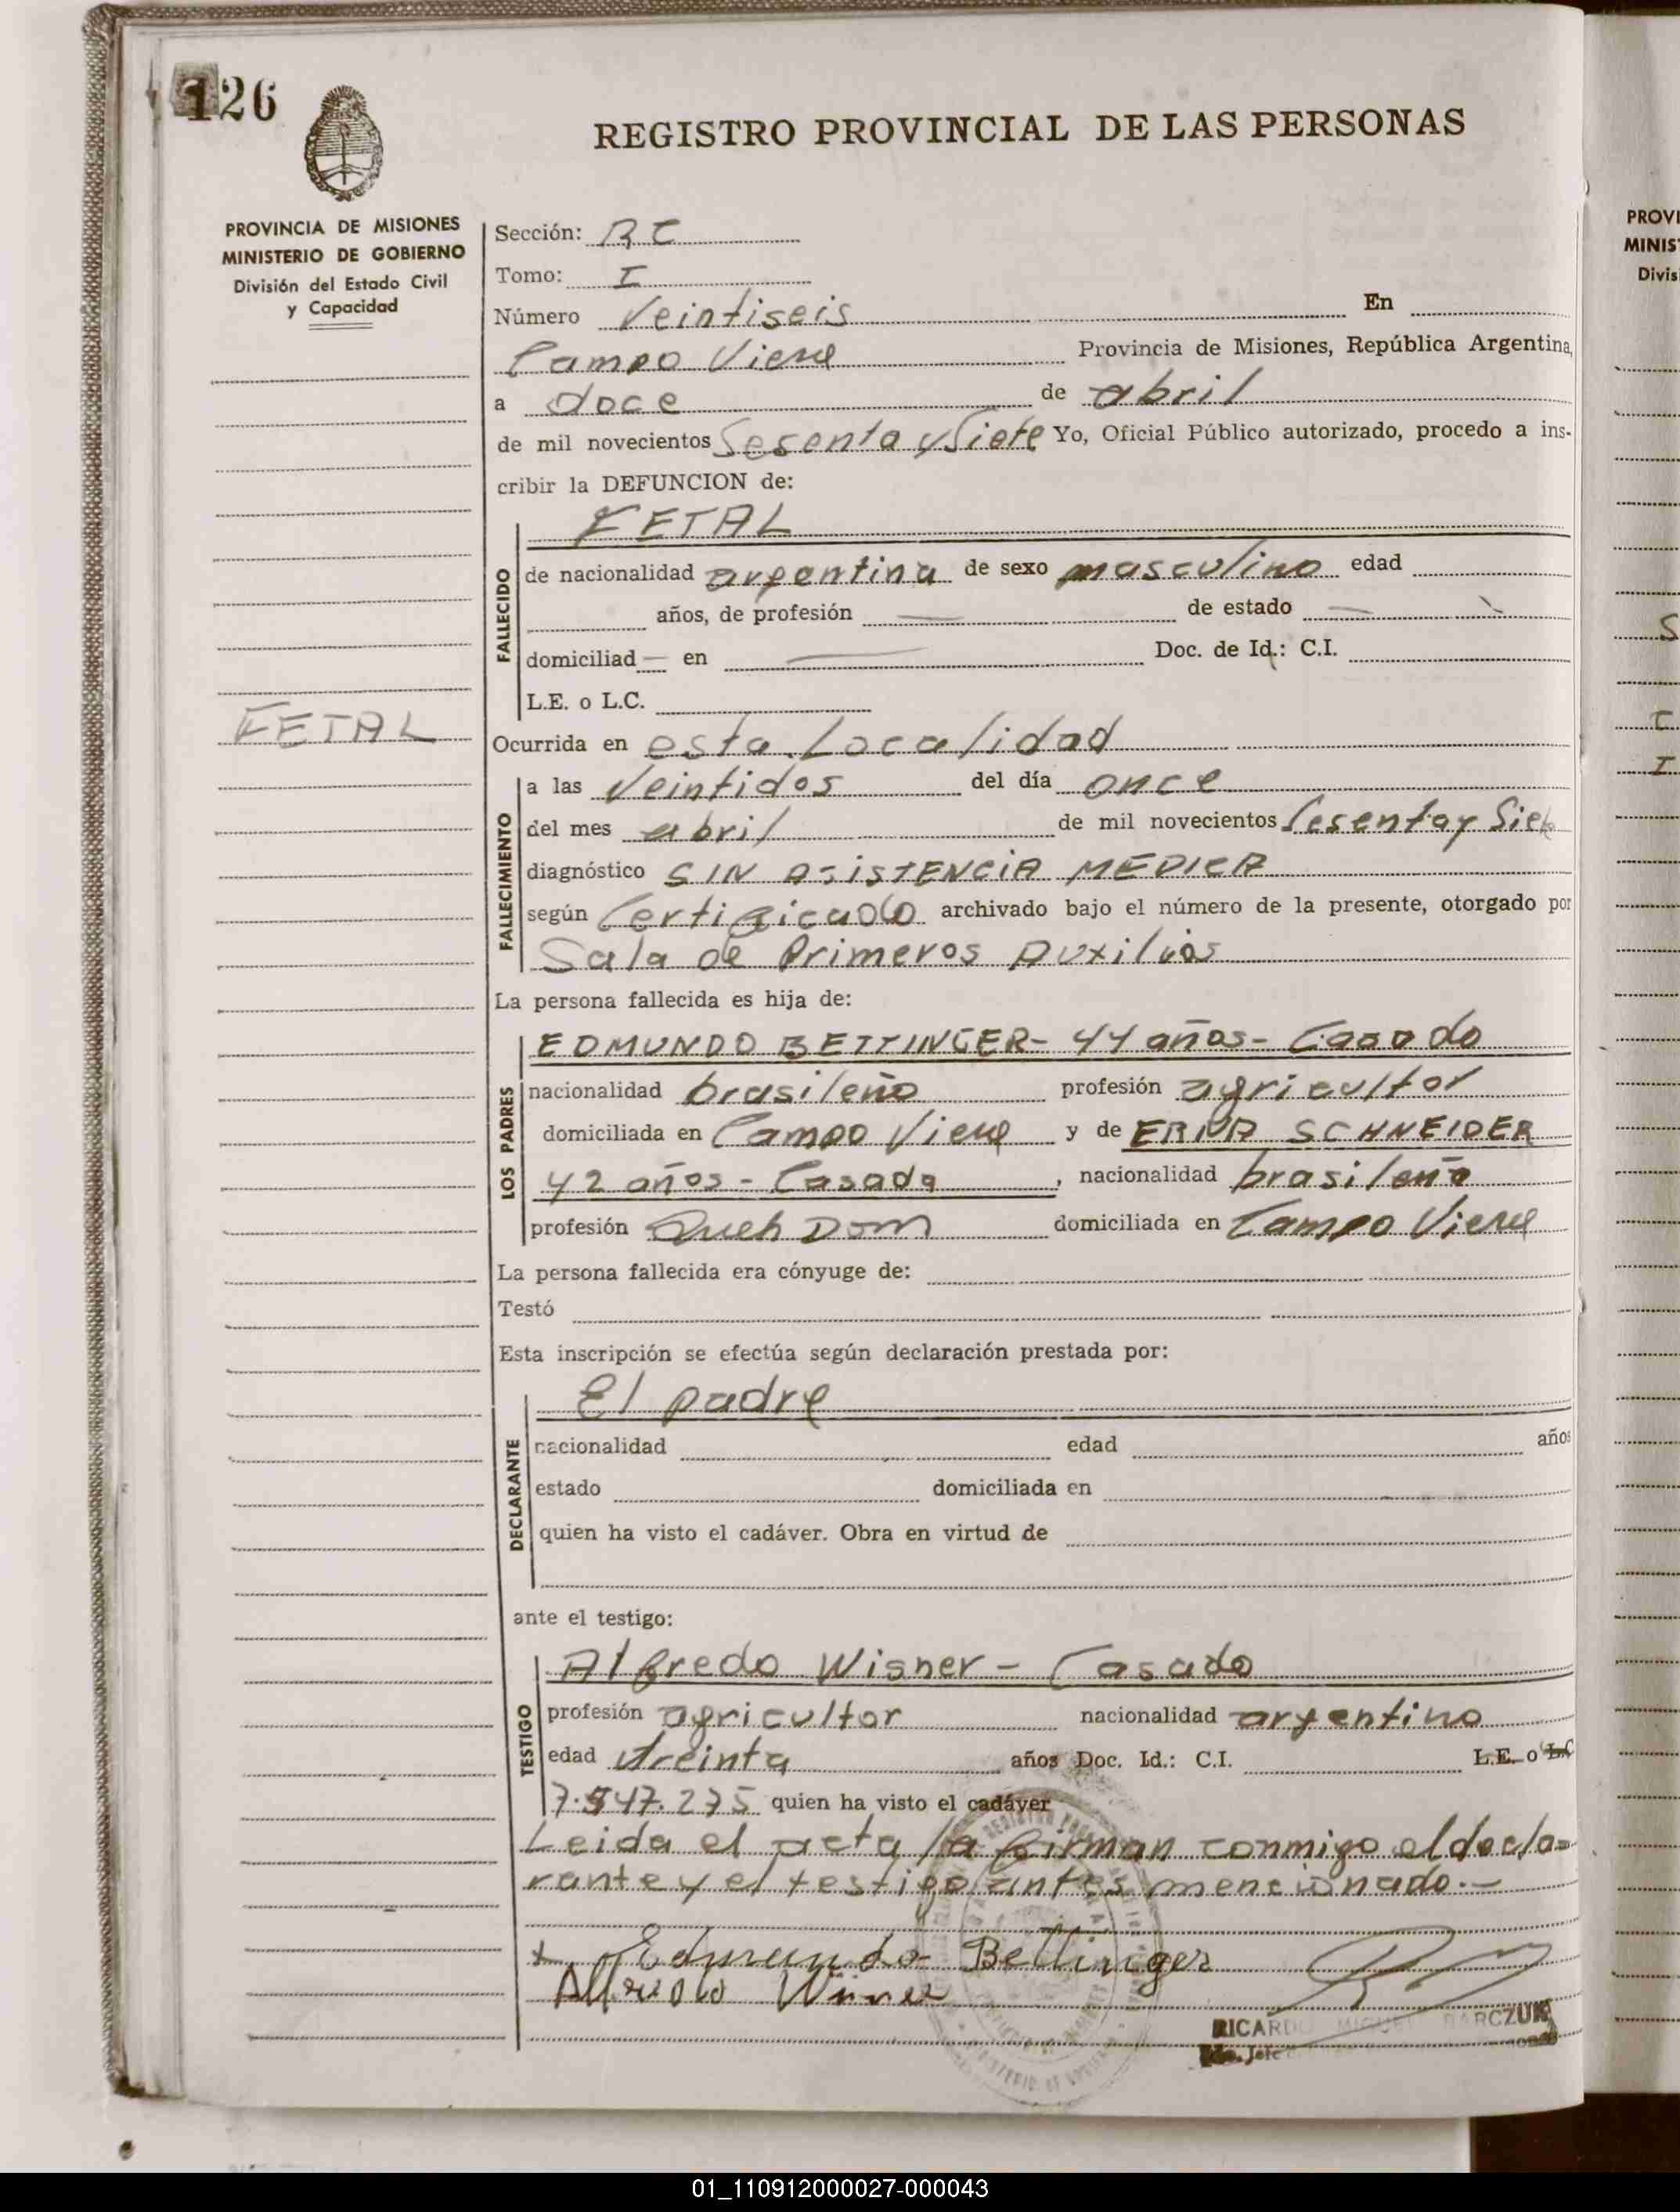 126
REGISTRO PROVINCIAL DE LAS PERSONAS
PROVINCIA DE MISIONES
MINISTERIO DE GOBIERNO
División del Estado Civil
y Capacidad
Sección: RC
Tomo: I
Número Veintiseis En
Campo Viera Provincia de Misiones, República Argentina,
a doce de abril
de mil novecientos Sesenta y Siete Yo, Oficial Público autorizado, procedo a ins-
cribir la DEFUNCION de:
FETAL
FALLECIDO
de nacionalidad argentina de sexo masculino edad
años, de profesión — de estado —
domiciliad — en — Doc. de Id.: C.I.
L.E. o L.C.
FETAL
Ocurrida en esta Localidad
FALLECIMIENTO
a las Veintidos del día once
del mes abril de mil novecientos Sesenta y Siete
diagnóstico SIN ASISTENCIA MEDICA
según Certificado archivado bajo el número de la presente, otorgado por
Sala de Primeros Auxilios
La persona fallecida es hija de:
LOS PADRES
EDMUNDO BETTINGER- 44 años- Casado
nacionalidad brasileño profesión agricultor
domiciliada en Campo Viera y de ERNA SCHNEIDER
42 años - Casada, nacionalidad brasileña
profesión Queh Dom domiciliada en Campo Viera
La persona fallecida era cónyuge de:
Testó
Esta inscripción se efectúa según declaración prestada por:
DECLARANTE
El padre
nacionalidad edad años
estado domiciliada en
quien ha visto el cadáver. Obra en virtud de
ante el testigo:
TESTIGO
Alfredo Wisner - Casado
profesión agricultor nacionalidad argentino
edad treinta años Doc. Id.: C.I. L.E. o L.C
7.547.275 quien ha visto el cadáver
Leida el acta la firman conmigo el decla-
rante y el testigo antes mencionado.-
x Edmundo Bettinger
Alfredo Wisner
RICARDO MIGUEL BARCZUK
PROVI
MINIS
Divis
01_110912000027-000043